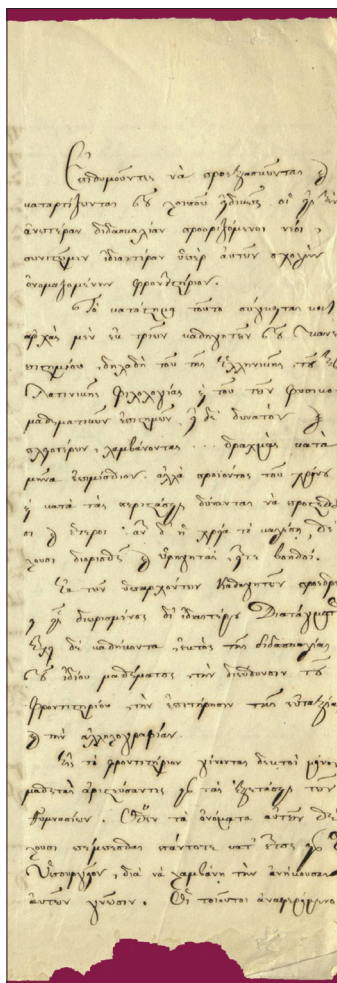 Ἐπιθυμοῦντες νὰ προεξασκῶνται &
καταρτίζωνται τοῦ λοιποῦ εἰδικῶς οἱ εἰς τὴν
ἀνωτέραν διδασκαλίαν προοριζόμενοι νέοι,
συνιστῶμεν ἰδιαιτέραν ὑπὲρ αὐτῶν σχολὴν
ὀνομαζομένην φροντιστήριον.
Τὸ κατάστημα τοῦτο σύγκειται κατ'
ἀρχὰς μὲν ἐκ τριῶν καθηγητῶν τοῦ Πανε
πιστημίου, δηλαδὴ τοῦ τῆς Ἑλληνικῆς, τοῦ τῆς
Λατινικῆς Φιλολογίας & τοῦ τῶν φυσικο
μαθηματικῶν ἐπιστημῶν, εἰ δὲ δυνατὸν &
πλειοτέρων, λαμβάνοντας ... δραχμὰς κατὰ
μῆνα ἐπιμίσθιον. ἀλλὰ προϊόντος τοῦ χρόνου
& κατὰ τὰς περιστάσεις δύνανται νὰ προστεθῶ
σι & ἕτεροι· ἂν δ' ἡ χρεία τὸ καλέσῃ, θέ
λουσι διορισθῆ & ὑφηγηταὶ εἴτε βοηθοί.
Ἐκ τῶν ὑπαρχόντων Καθηγητῶν προεδρεύ
ει εἷς διωρισμένος δι' ἰδιαιτέρου Διατάγματος
ἔχει δὲ καθήκοντα, ἐκτὸς τῆς διδασκαλίας
τοῦ ἰδίου μαθήματος, τὴν διεύθυνσιν τοῦ
φροντιστηρίου, τὴν ἐπιτήρησιν τῆς εὐταξίας
& τὴν ἀλληλογραφίαν.
Εἰς τὸ φροντιστήριον γίνονται δεκτοὶ μόνον
μαθηταὶ ἀριστεύσαντες εἰς τὰς ἐξετάσεις τῶν
Γυμνασίων. Ὅθεν τὰ ὀνόματα αὐτῶν θέ
λουσι πέμπεσθαι πάντοτε κατ' ἔτος εἰς τὸ
Ὑπουργεῖον, διὰ νὰ λαμβάνῃ τὴν ἀνήκουσαν
αὐτῶν γνῶσιν. Οἱ τοιοῦτοι ἀναφερόμενοι